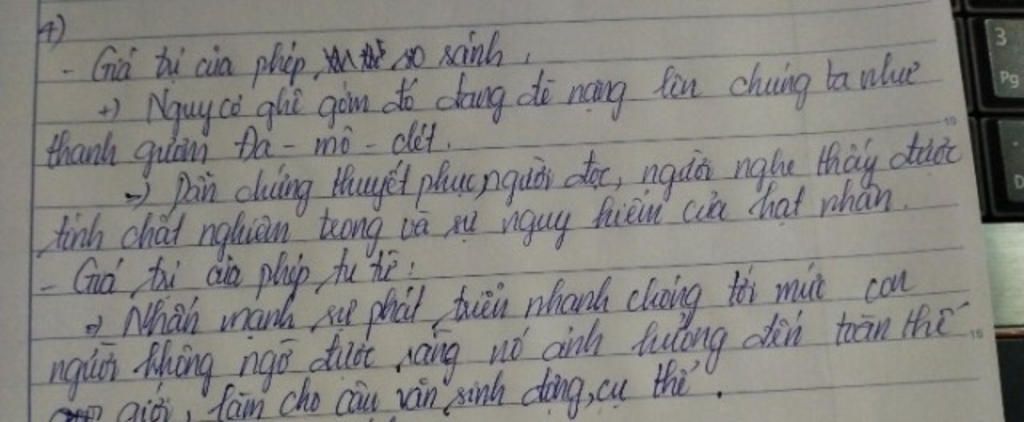 4)
- Giá trị của phép so sánh:
+) Nguy cơ ghê gớm đó đang đè nặng lên chúng ta như
thanh gươm Đa - mô - clét.
=) Dẫn chứng thuyết phục, người đọc, người nghe thấy được
tính chất nghiêm trọng và sự nguy hiểm của hạt nhân.
- Giá trị của phép tu từ:
=) Nhấn mạnh sự phát triển nhanh chóng tới mức con
người không ngờ được rằng nó ảnh hưởng đến toàn thế
giới, làm cho câu văn sinh động, cụ thể.
3
Pg
D
10
15